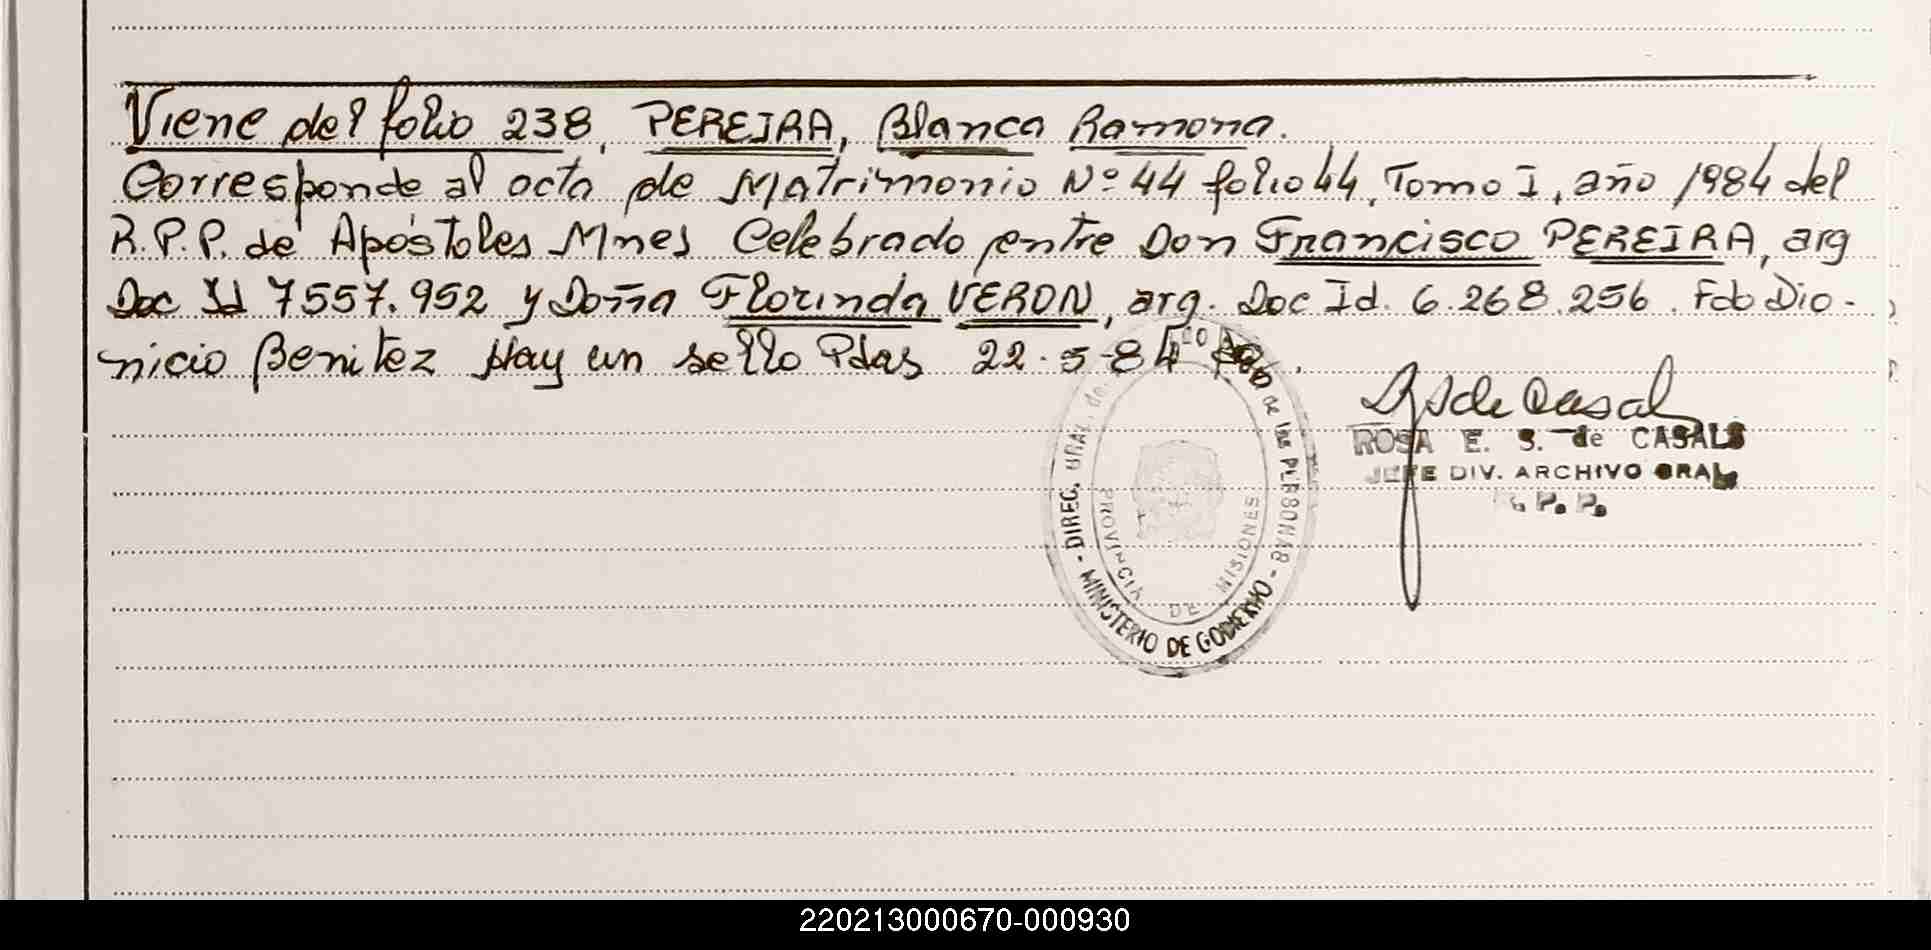 Viene del folio 238, PEREIRA, Blanca Ramona.
Corresponde al acta de Matrimonio Nº 44 folio 44, Tomo I, año 1984 del
R.P.P. de Apóstoles Mnes Celebrado entre Don Francisco PEREIRA, arg
Doc Id 7557.952 y Doña Florinda VERON, arg. Doc Id. 6.268.256. Fdo Dio-
nicio Benitez Hay un sello Pdas 22-5-84
ROSA E. S. de CASALS
JEFE DIV. ARCHIVO GRAL
R. P. P.
- DIREC. GRAL. de las PERSONAS -
MINISTERIO DE GOBIERNO
PROVINCIA DE MISIONES
220213000670-000930